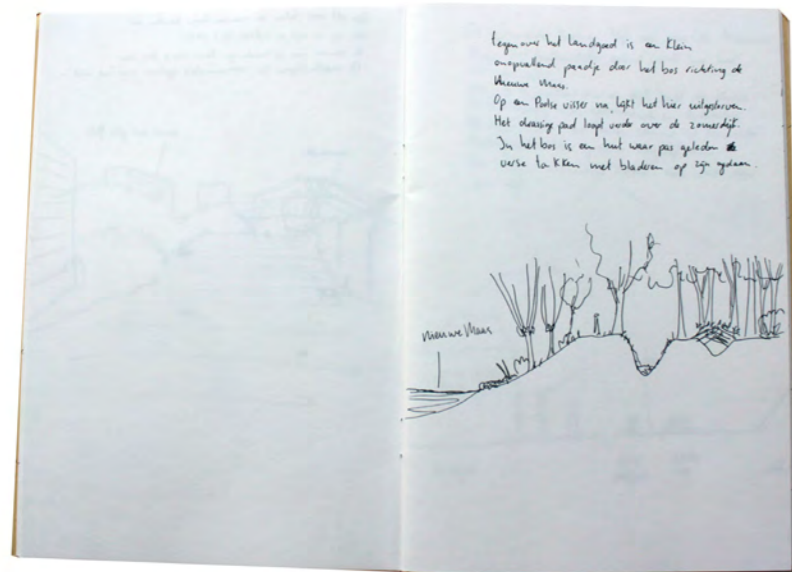 tegenover het landgoed is een klein
onopvallend paadje door het bos richting de
Nieuwe Maas.
Op een Poolse visser na, lijkt het hier uitgestorven.
Het drassige pad loopt verder over de zomerdijk.
In het bos is een hut waar pas geleden
verse takken met bladeren op zijn gedaan.
nieuwe Maas